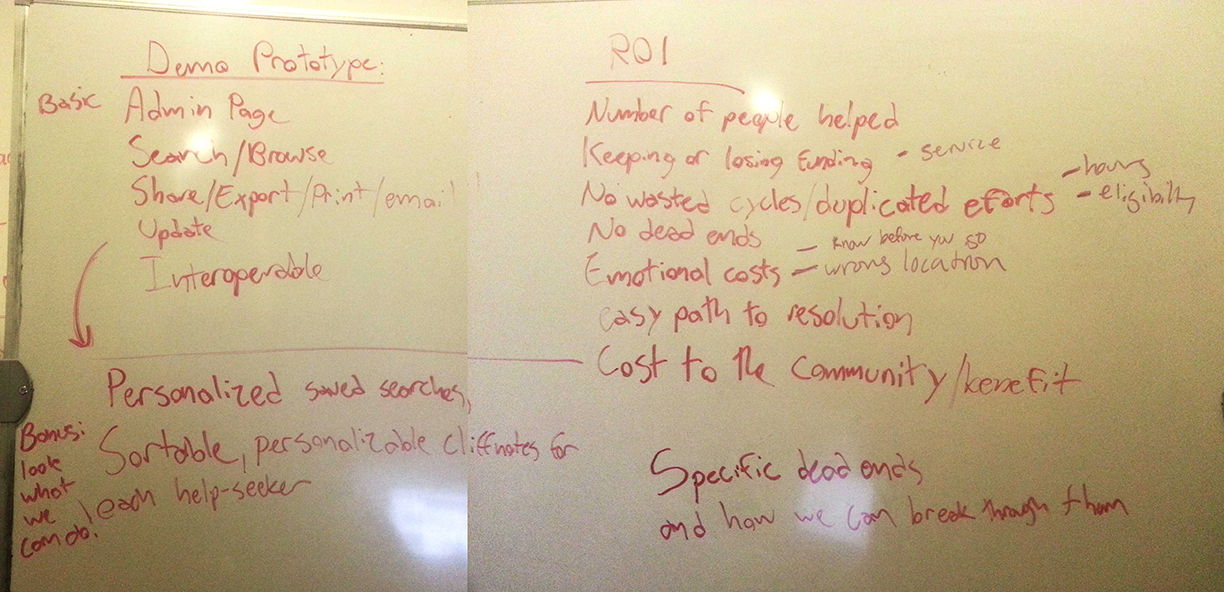 Demo Prototype:
Basic Admin Page
Search/Browse
Share/Export/Print/email
Update
Interoperable
Personalized saved searches,
Sortable, personalizable cliffnotes for
each help-seeker
Bonus:
look
what
we
can do.
ROI
Number of people helped
Keeping or losing funding - service
No wasted cycles/duplicated eforts - hours
- eligibilty
No dead ends - know before you go
Emotional costs - wrong location
easy path to resolution
Cost to the Community/benefit
Specific dead ends
and how we can break through them